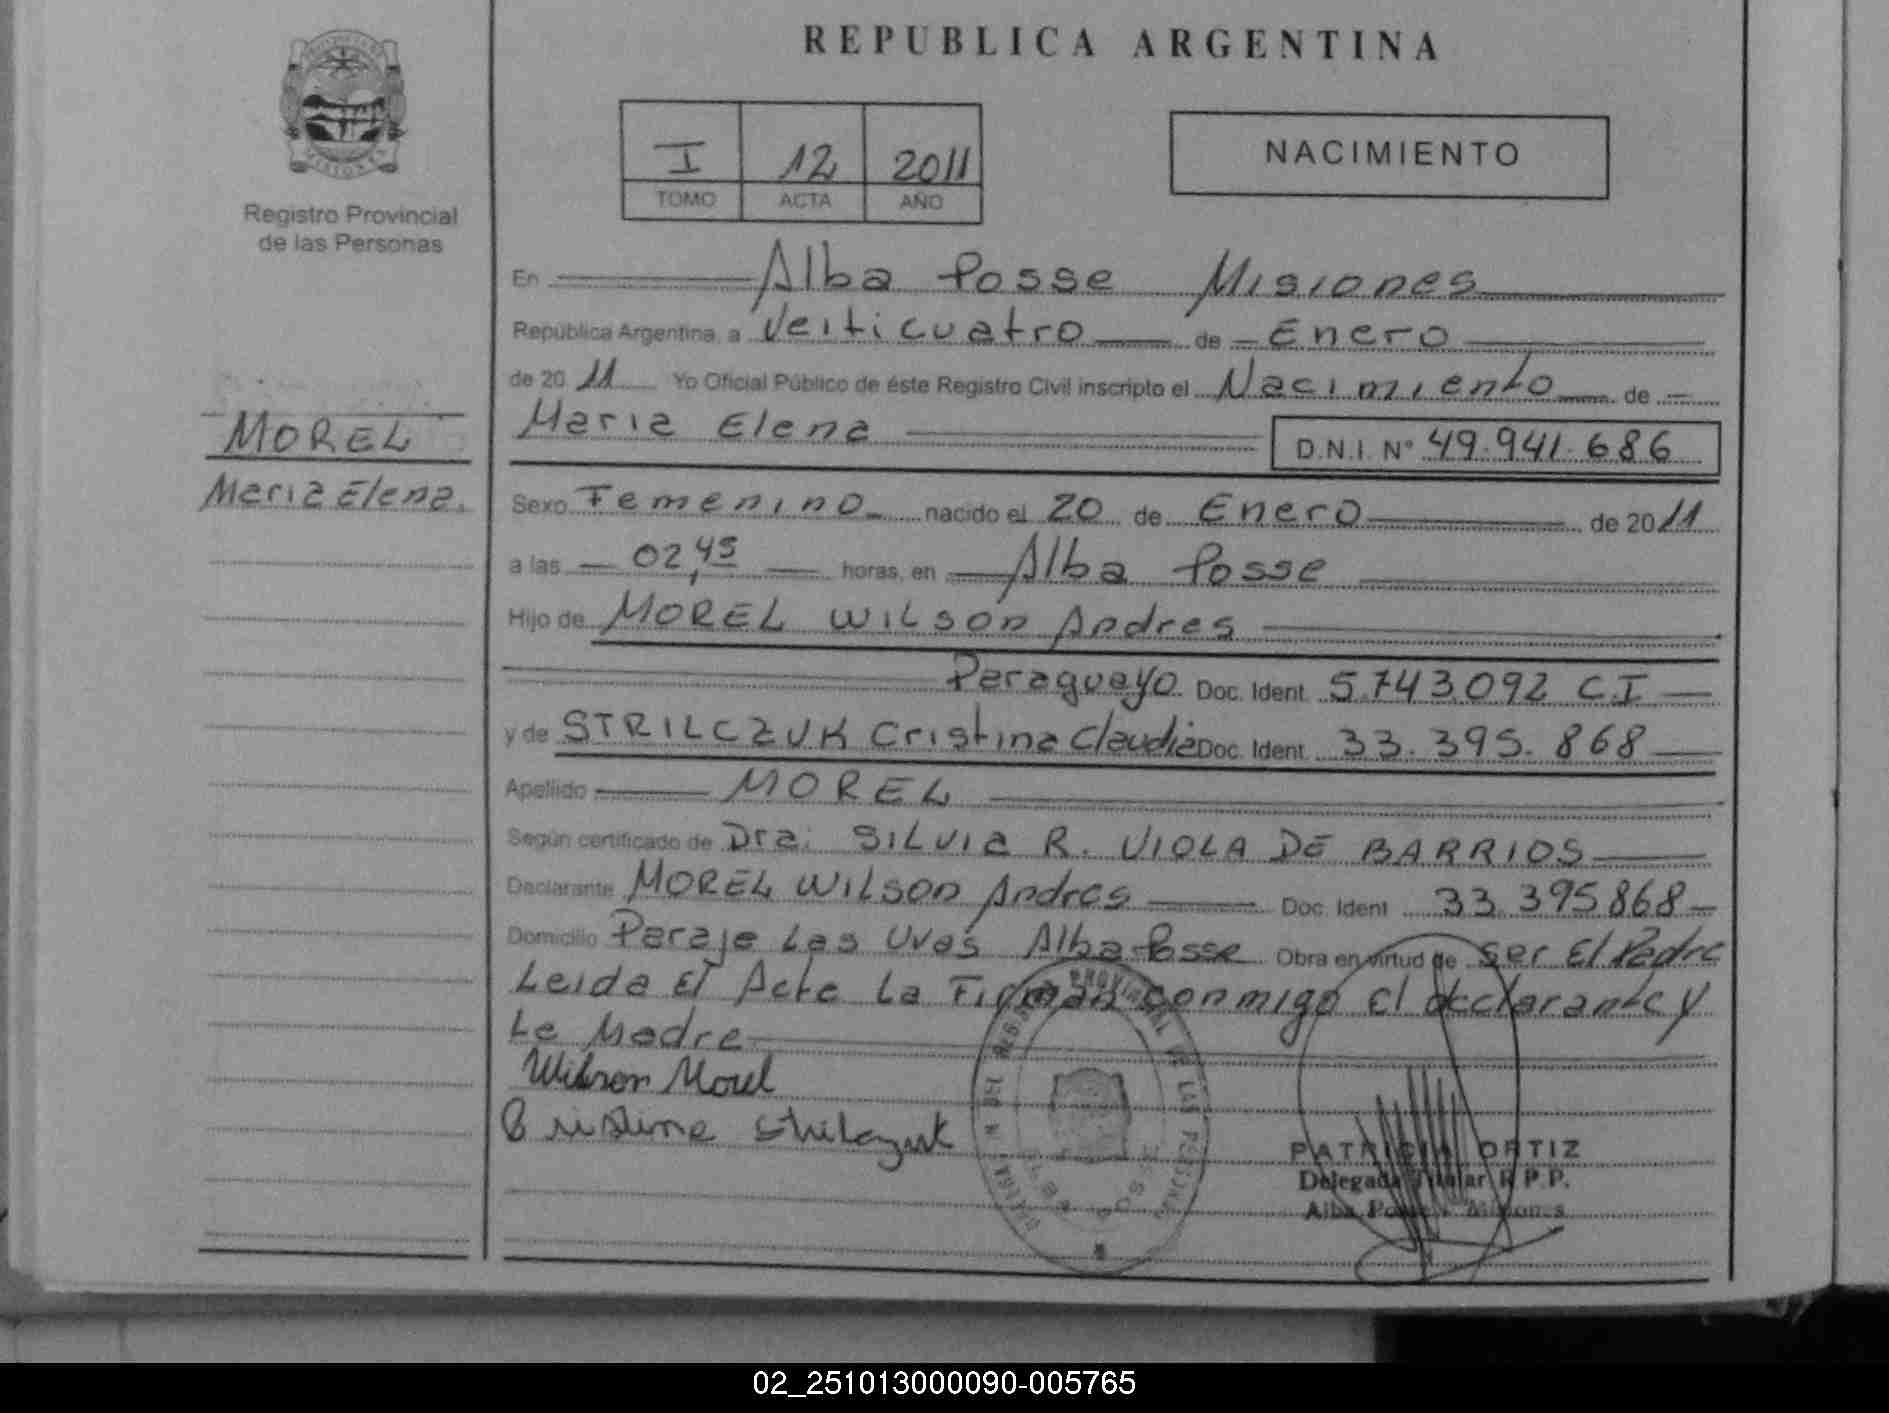 REPUBLICA ARGENTINA
PROVINCIA DE
MISIONES
Registro Provincial
de las Personas
I 12 2011
TOMO ACTA AÑO
NACIMIENTO
En Alba Posse Misiones
República Argentina, a Veiticuatro de Enero
de 2011 Yo Oficial Público de éste Registro Civil inscripto el Nacimiento de
Maria Elena D.N.I. Nº 49.941.686
MOREL
Maria Elena.
Sexo Femenino nacido el 20 de Enero de 2011
a las 02,45 horas, en Alba Posse
Hijo de MOREL WILSON Andres
Paraguayo Doc. Ident. 5.743.092 C.I
y de STRILCZUK Cristina Claudia Doc. Ident. 33.395.868
Apellido MOREL
Según certificado de Dra. SILVIA R. VIOLA DE BARRIOS
Declarante MOREL WILSON Andres Doc. Ident 33.395868
Domicilio Paraje Las Uvas Alba Posse Obra en virtud de Ser El Padre
Leida El Acta La Firman conmigo El declarante y
La Madre
Wilson Morel
PROVINCIAL DE LAS PERSONAS
ALBA POSSE
PATRICIA ORTIZ
Delegada Titular R.P.P.
Alba Posse Misiones
02_251013000090-005765